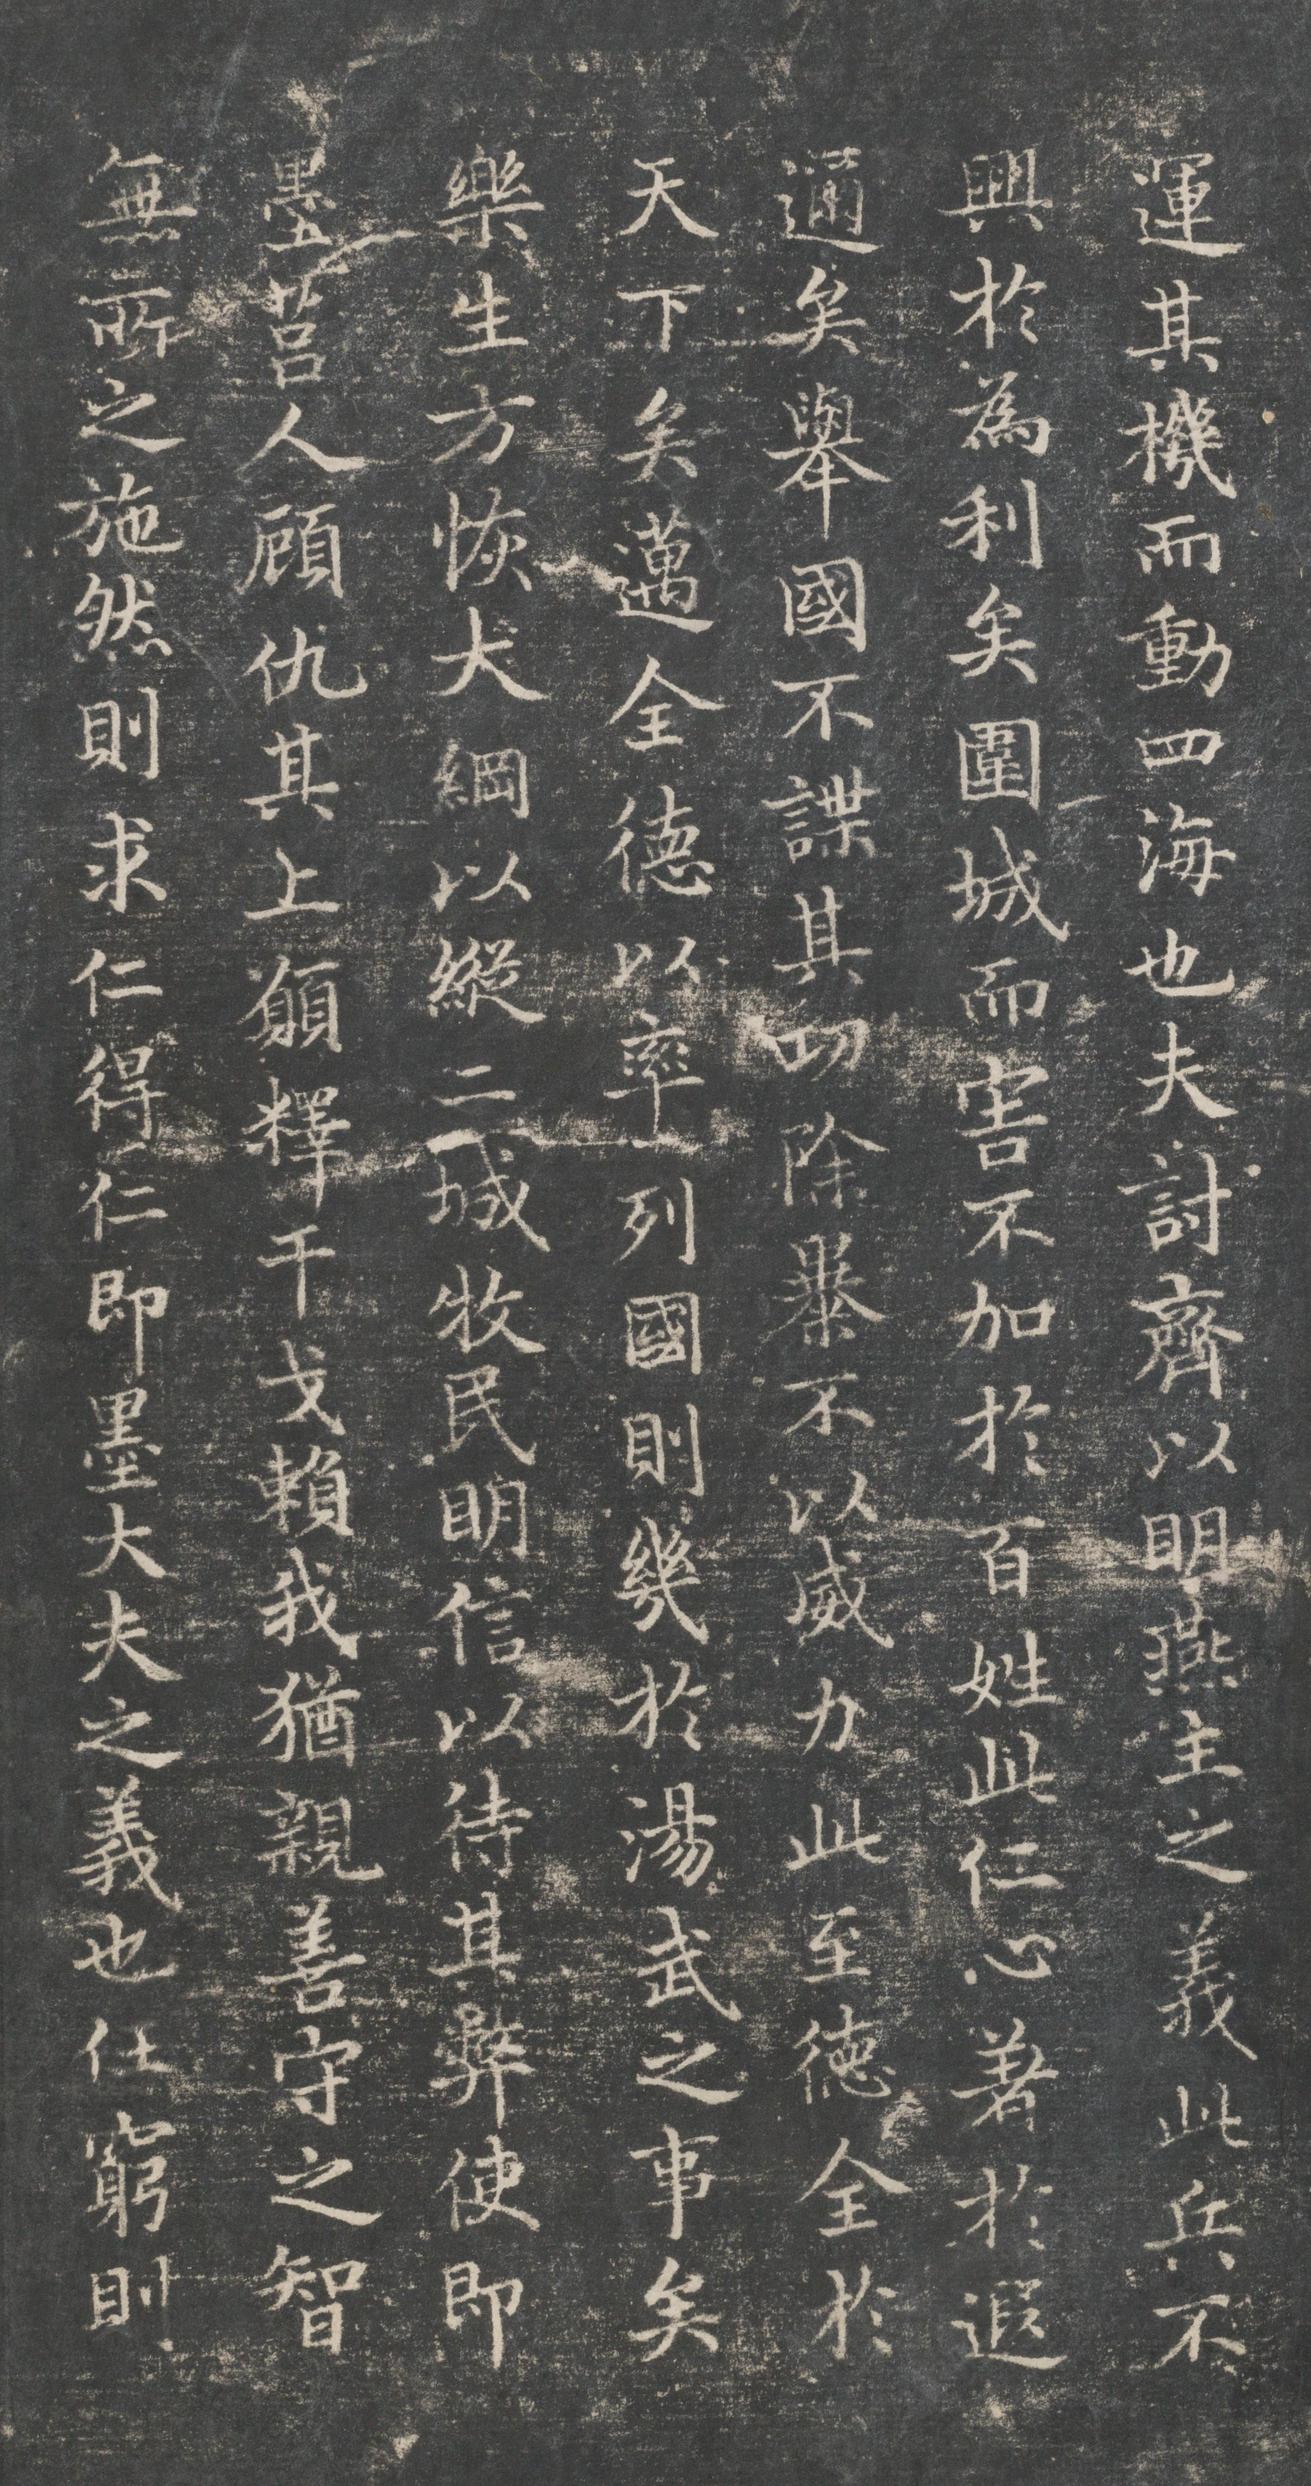 運其機而動四海也夫討齊以明燕主之義此兵不
興於為利矣圍城而害不加於百姓此仁心著於遐
邇矣舉國不謀其功除暴不以威力此至德全於
天下矣邁全德以率列國則幾於湯武之事矣
樂生方恢大綱以縱二城牧民明信以待其弊使即
墨莒人顧仇其上願釋干戈賴我猶親善守之智
無所之施然則求仁得仁即墨大夫之義也仕窮則